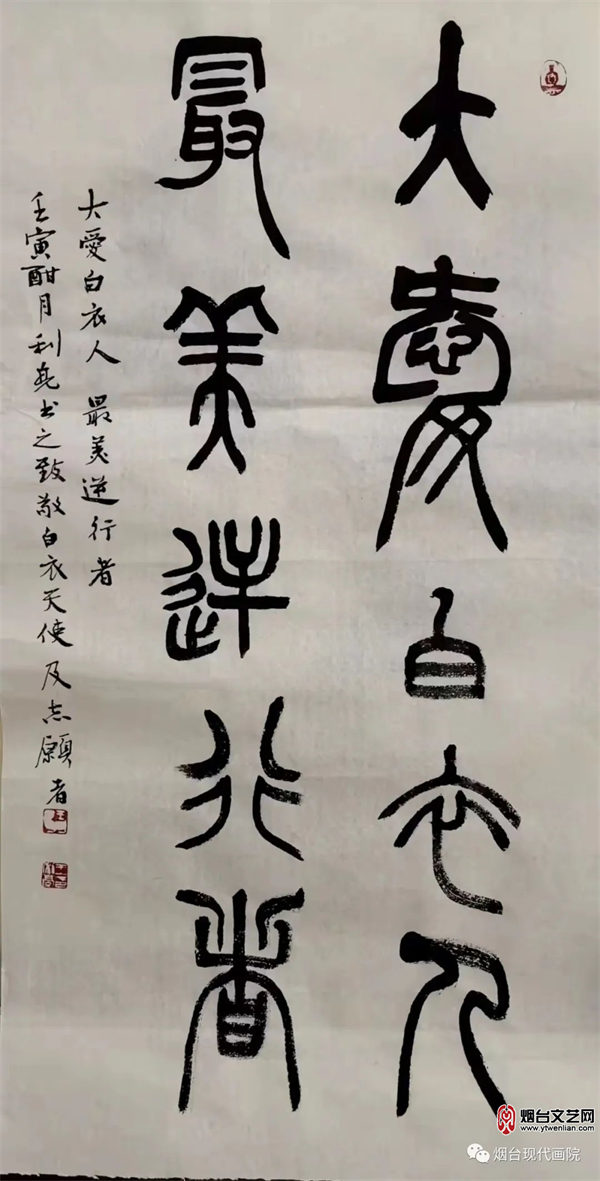 大爱白衣人
最美逆行者
大爱白衣人 最美逆行者
壬寅酣月利 书之致敬白衣天使及志愿者
烟台文艺网
www.ytwenlian.com
烟台现代画院